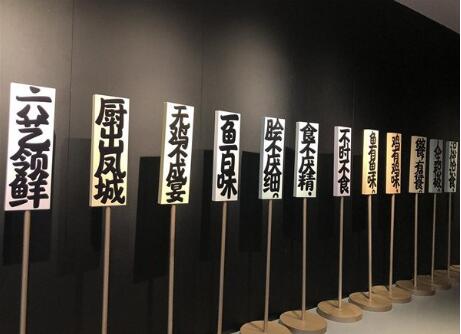 六艺领鲜
厨出凤城
无鸡不成宴
一鱼百味
脍不厌细。
食不厌精，
不时不食
鱼有鱼味。
鸡有鸡味，